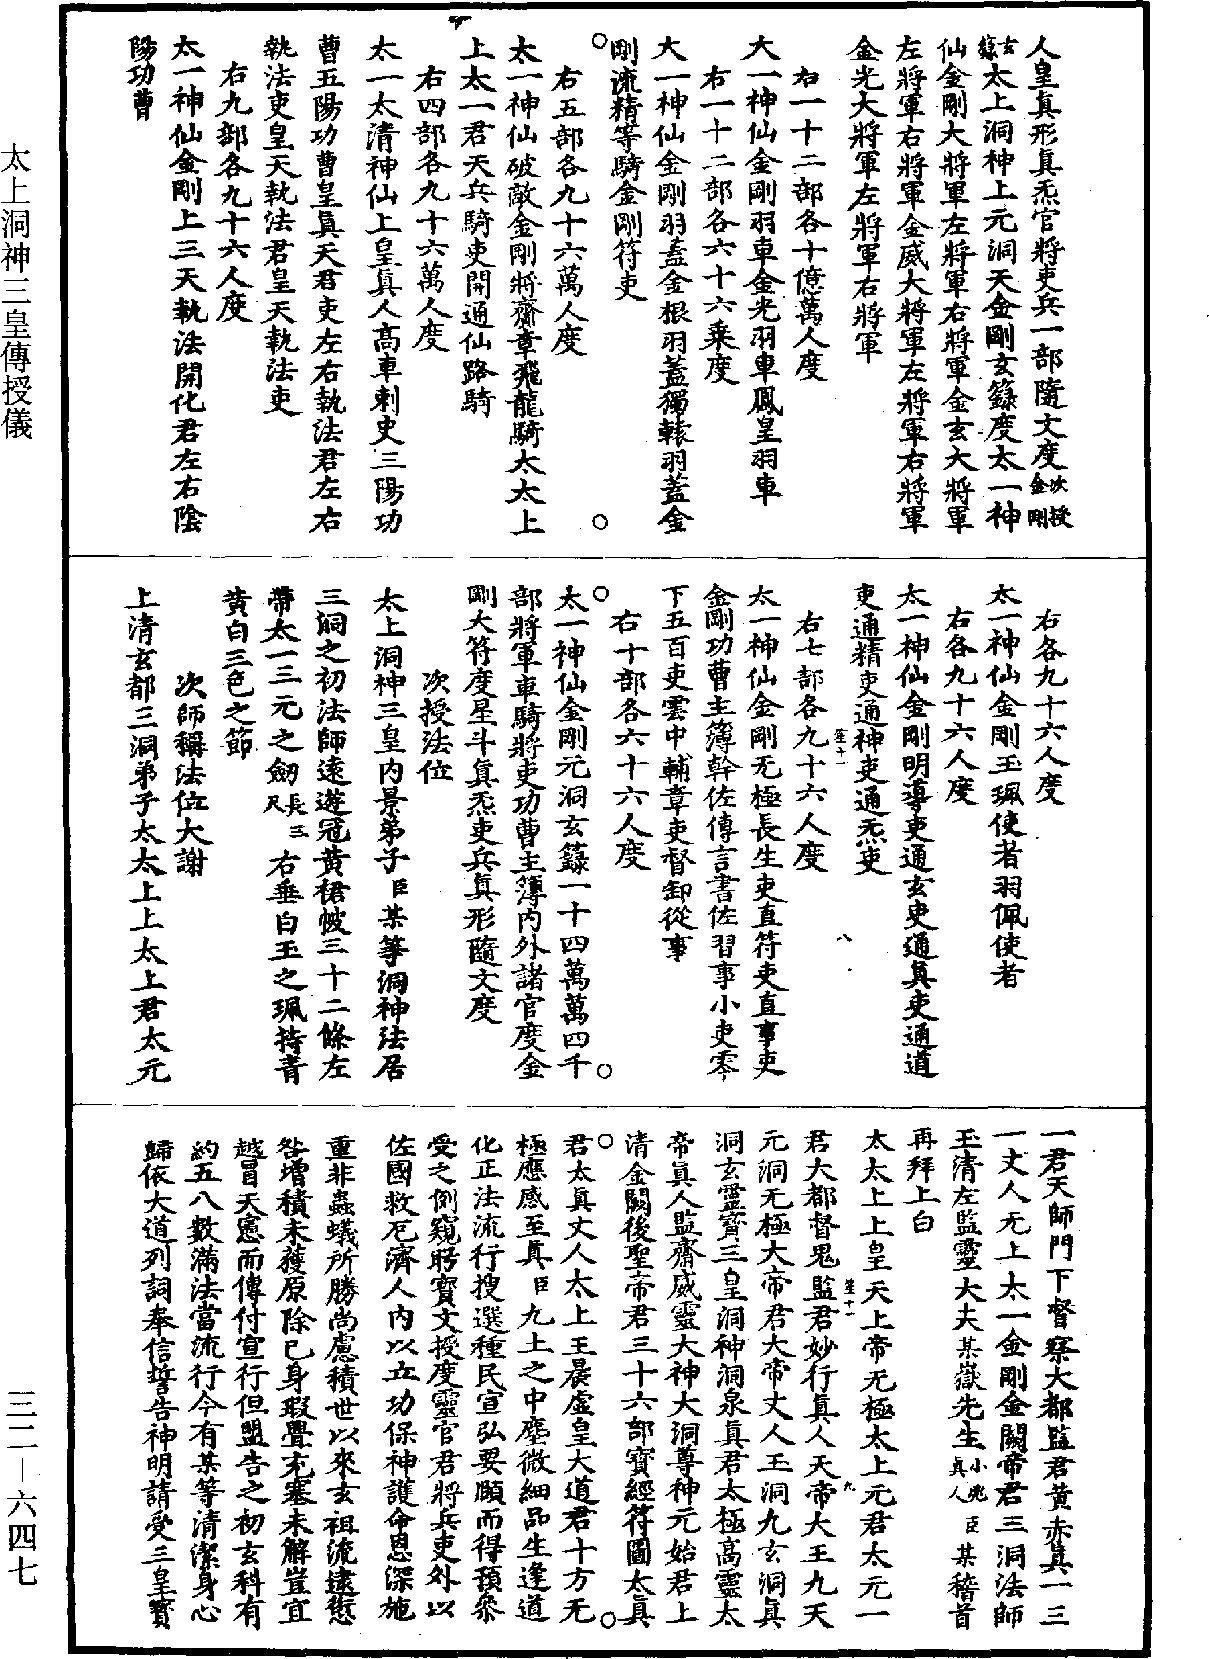 太上洞神三皇傳授儀
三二—六四七
人皇真形真炁官將吏兵一部隨文度次授金剛
玄籙太上洞神上元洞天金剛玄籙度太一神
仙金剛大將軍左將軍右將軍金玄大將軍
左將軍右將軍金威大將軍左將軍右將軍
金光大將軍左將軍右將軍
右一十二部各十億萬人度
大一神仙金剛羽車金光羽車鳳皇羽車
右一十二部各六十六乘度
大一神仙金剛羽蓋金根羽蓋獨轅羽蓋金
剛流精等騎金剛符吏
右五部各九十六萬人度
太一神仙破敵金剛將齋章飛龍騎太太上
上太一君天兵騎吏開通仙路騎
右四部各九十六萬人度
太一太清神仙上皇真人高車刺吏三陽功
曹五陽功曹皇真天君吏左右執法君左右
執法吏皇天執法君皇天執法吏
右九部各九十六人度
太一神仙金剛上三天執法開化君左右陰
陽功曹
右各九十六人度
太一神仙金剛玉珮使者羽佩使者
右各九十六人度
太一神仙金剛明導吏通玄吏通真吏通道
吏通精吏通神吏通炁吏
右七部各九十六人度
太一神仙金剛无極長生吏直符吏直事吏
金剛功曹主簿幹佐傳言書佐習事小吏零
下五百吏雲中輔章吏督卸從事
右十部各六十六人度
太一神仙金剛元洞玄籙一十四萬萬四千
部將軍車騎將吏功曹主簿內外諸官度金
剛大符度星斗真炁吏兵真形隨文度
次授法位
太上洞神三皇內景弟子臣某等洞神法居
三洞之初法師遠遊冠黃裙帔三十二條左
帶太一三元之劒長三尺右垂白玉之珮持青
黃白三色之節
次師稱法位大謝
上清玄都三洞弟子太太上上太上君太元
一君天師門下督察大都監君黃赤真一三
一丈人无上太一金剛金闕帝君三洞法師
玉清左監靈大夫某嶽先生小兆真人臣某稽首
再拜上白
太太上上皇天上帝无極太上元君太元一
君大都督鬼監君妙行真人天帝大王九天
元洞无極大帝君大帝丈人玉洞九玄洞真
洞玄靈寶三皇洞神洞泉真君太極高靈太
帝真人監齋威靈大神大洞尊神元始君上
清金闕後聖帝君三十六部寶經符圖太真
君太真丈人太上王晨虛皇大道君十方无
極應感至真臣九土之中塵微細品生逢道
化正法流行搜選種民宣弘要願而得預參
受之例窺眄寶文授度靈官君將兵吏外以
佐國救厄濟人內以立功保神護命恩深施
重非蟲蟻所勝尚慮積世以來玄祖流逮愆
咎增積未獲原除己身瑕舋充塞未解豈宜
越冒天憲而傳付宣行但盟告之初玄科有
約五八數滿法當流行今有某等清潔身心
歸依大道列詞奉信誓告神明請受三皇寶